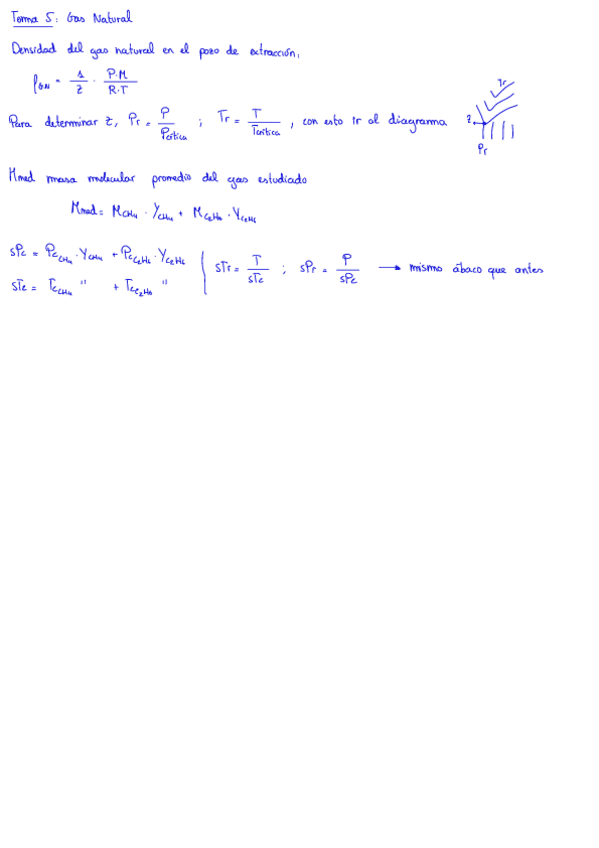 Tema 5: Gas Natural
Densidad del gas natural en el pozo de extracción,
ρGN = 1/z · P·M/R·T
Para determinar z, Pr = P/Pcrítica ; Tr = T/Tcrítica , con esto ir al diagrama
Tr
z
Pr
Mmed masa molecular promedio del gas estudiado
Mmed = MCH4 · YCH4 + MC2H6 · YC2H6
sPc = PcCH4 · YCH4 + PcC2H6 · YC2H6
sTc = TcCH4 " + TcC2H6 "
sTr = T/sTc ; sPr = P/sPc → mismo ábaco que antes